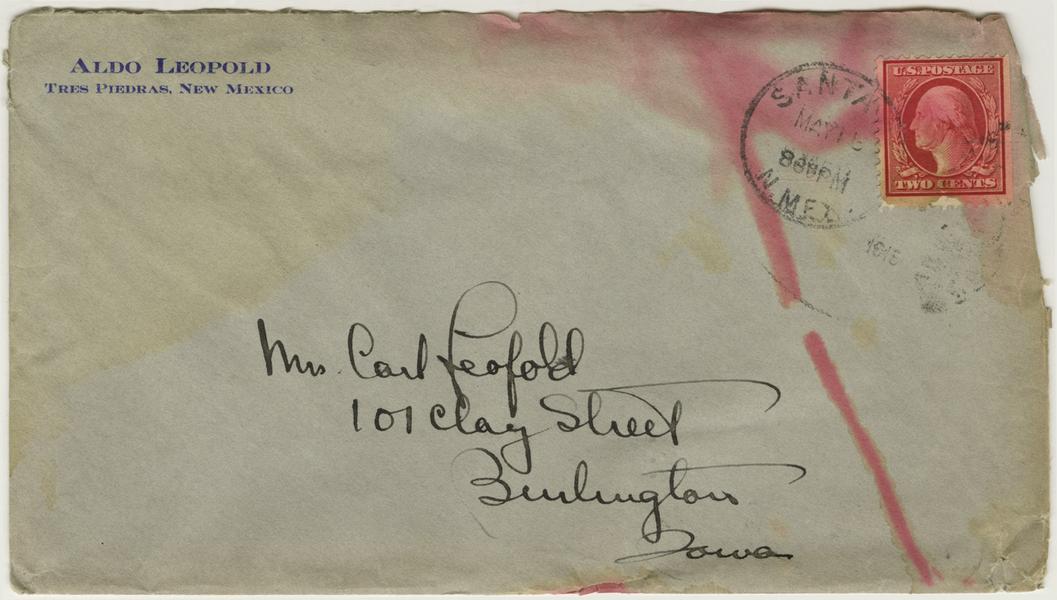 ALDO LEOPOLD
TRES PIEDRAS, NEW MEXICO
U.S. POSTAGE
TWO CENTS
SANTA
MAY 15
PM
N. MEX.
1915
Mrs. Carl Leopold
101 Clay Street
Burlington
Iowa